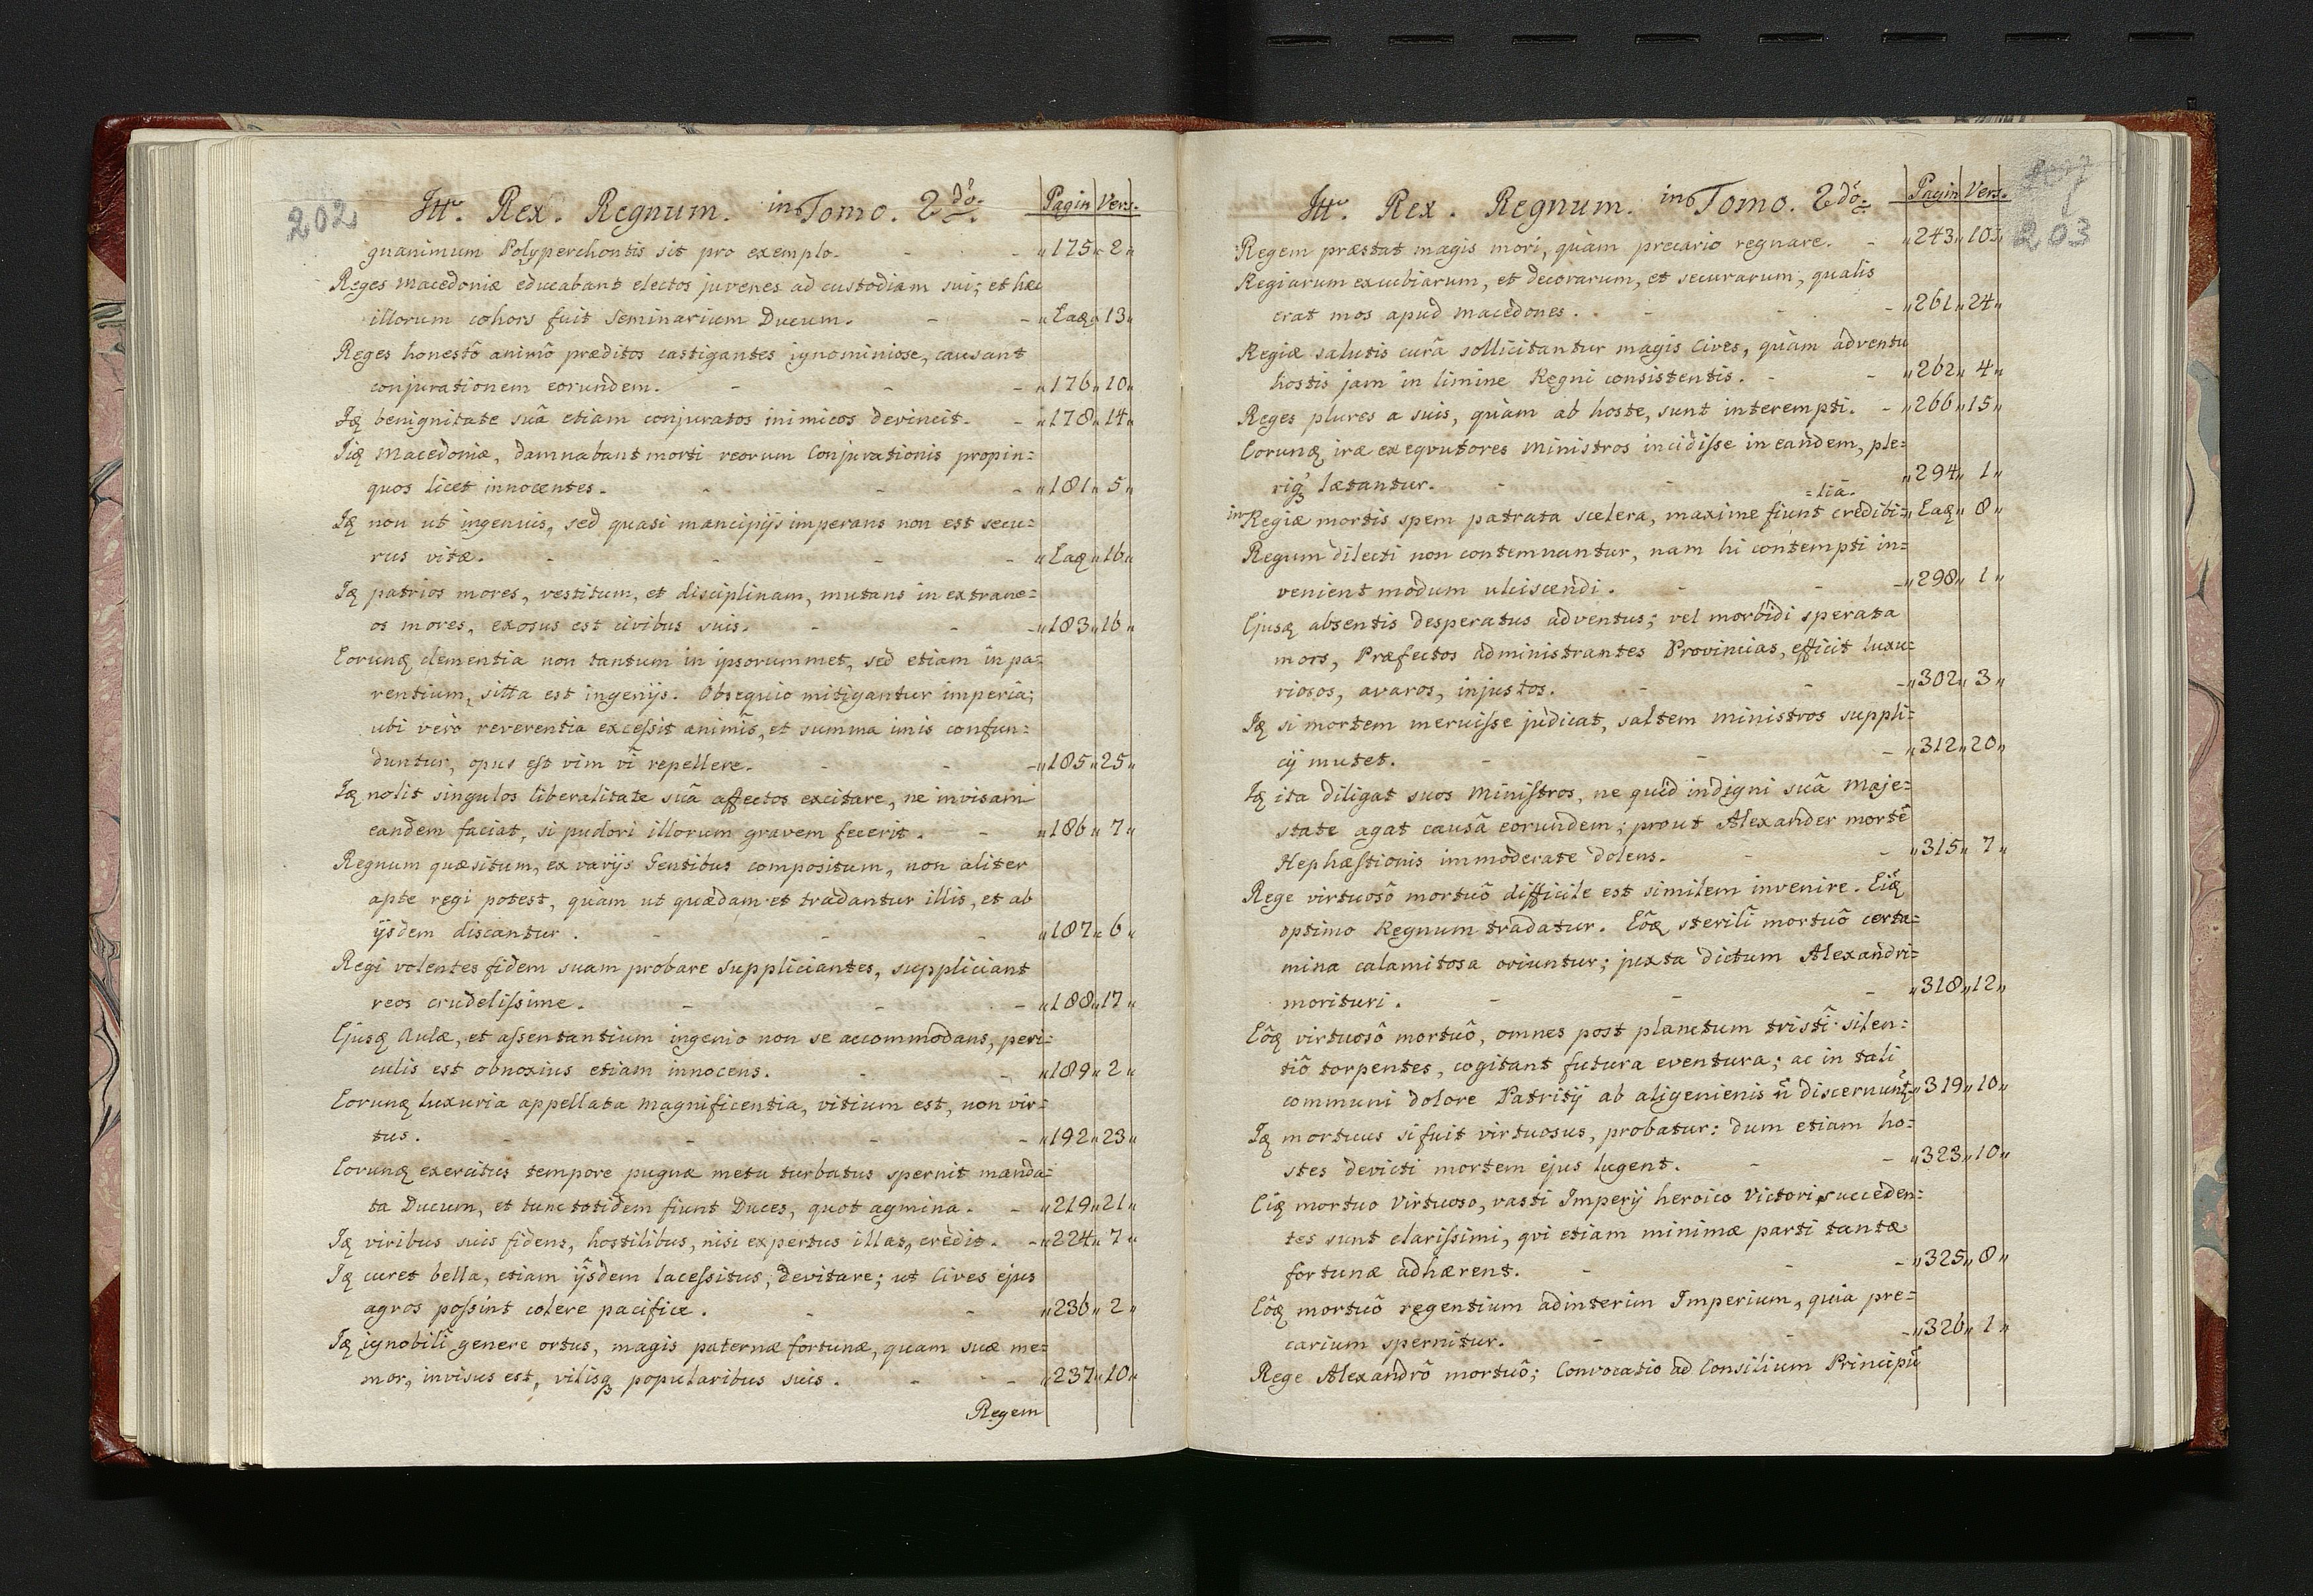 202
Rex. Regnum. in Tomo. 2dô. Pagin Vers.
gnanimum Polyperchontis sit pro exemplo. - - „175„ 2„
Reges Macedoniæ educabant electos juvenes ad custodiam sui; et hæc
illorum cohors fuit Seminarium Ducum. - - „Eaq„ 13„
Reges honestô animô præditos castigantes ignominiose, causant
conjurationem eorundem. - - - „176„ 10„
Iq benignitate suâ etiam conjuratos inimicos devincit. - „178„ 14„
Iiq Macedoniæ, damnabant morti reorum Conjurationis propin=
quos licet innocentes. - - - „181„ 5„
Iq non ut ingenuis, sed quasi mancipijs imperans non est secu=
rus vitæ. - - - - „Eaq„ 16„
Iq patrios mores, vestitum, et disciplinam, mutans in extrane=
os mores, exosus est civibus suis. - - - „183„ 16„
Eorunq clementia non tantum in ipsorummet, sed etiam in pa=
rentium, sitta est ingenijs. Obsequio mitigantur imperia;
ubi verò reverentia excessit animis, et summa imis confun=
duntur, opus est vim vi repellere. - - - „185„ 25„
Iq nolit singulos liberalitate suâ affectos excitare, ne invisam
eandem faciat, si pudori illorum gravem fecerit. - „186„ 7„
Regnum quæsitum, ex varijs Gentibus compositum, non aliter
apte regi potest, quàm ut quædam et tradantur illis, et ab
ijsdem discantur. - - - „187„ 6„
Regi volentes fidem suam probare suppliciantes, suppliciant
reos crudelissime. - - - „188„ 17„
Ejusq Aulæ, et assentantium ingenio non se accommodans, peri=
culis est obnoxius etiam innocens. - - „189„ 2„
Eorunq luxuria appellata magnificentia, vitium est, non vir=
tus. - - - - „192„ 23„
Eorunq exercitus tempore pugnæ metu turbatus spernit manda=
ta Ducum, et tunc totidem fiunt Duces, quot agmina. - „219„ 21„
Iq viribus suis fidens, hostilibus, nisi expertus illas, credit. - „224„ 7„
Iq curet bella, etiam ijsdem lacessitus, devitare; ut Cives ejus
agros possint colere pacifice. - - „236„ 2„
Iq ignobili genere ortus, magis paternæ fortunæ, quam suæ me=
mor, invisus est, vilisq popularibus suis. - - „237„ 10„
Regem
203
Rex. Regnum. in Tomo. 2dô. Pagin Vers.
Regem præstat magis mori, quàm precario regnare. - „243„ 10„
Regiarum excubiarum, et decorarum, et securarum, qualis
erat mos apud Macedones. - - - „261„ 24„
Regiæ salutis curâ sollicitantur magis Cives, quàm adventu
hostis jam in limine Regni consistentis. - - „262„ 4„
Reges plures a suis, quàm ab hoste, sunt interempti. - „266„ 15„
Eorunq iræ exeqvutores Ministros incidisse in eandem, ple=
riq lætantur. - - „294„ 1„
=lia.
in Regiæ mortis spem patrata scelera, maxime fiunt credibi= „Eaq„ 8„
Regum dilecti non contemnantur, nam hi contempti in=
venient modum ulciscendi. - - - „298„ 1„
Ejusq absentis desperatus adventus; vel morbidi sperata
mors, Præfectos administrantes Provincias, efficit luxu=
riosos, avaros, injustos. - - - „302„ 3„
Iq si mortem meruisse judicat, saltem ministros suppli=
cij mutet. - - - „312„ 20„
Iq ita diligat suos Ministros, ne quid indigni suâ Maje=
state agat causâ eorundem; prout Alexander morte
Hephæstionis immoderate dolens. - - „315„ 7„
Rege virtuosô mortuô difficile est similem invenire. Eiq
optimo Regnum tradatur. Eôq sterili mortuô certa=
mina calamitosa oriuntur; juxta dictum Alexandri=
morituri. - - - „318„ 12„
Eôq virtuosô mortuô, omnes post planctum tristi silen=
tiô torpentes, cogitant futura eventura; ac in tali
communi dolore Patritij ab aligenienis n̄ discernunt „319„ 10„
Iq mortuus si fuit virtuosus, probatur: dum etiam ho=
stes devicti mortem ejus lugent. - - „323„ 10„
Eiq mortuo Virtuoso, vasti Imperij heroico Victori, succeden=
tes sunt clarissimi, qvi etiam minimæ parti tantæ
fortunæ adhærent. - - - „325„ 8„
Eôq mortuô regentium adinterim Imperium, quia pre=
carium spernitur. - - - „326„ 1„
Rege Alexandrô mortuô; Convocatio ad Consilium Principū